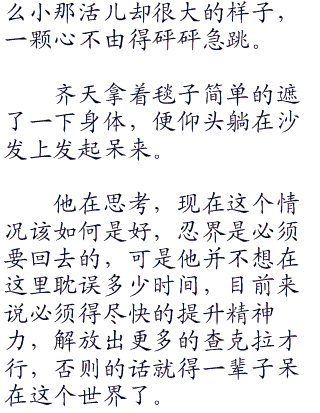 么小那活儿却很大的样子，
一颗心不由得砰砰急跳。
齐天拿着毯子简单的遮
了一下身体，便仰头躺在沙
发上发起呆来。
他在思考，现在这个情
况该如何是好，忍界是必须
要回去的，可是他并不想在
这里耽误多少时间，目前来
说必须得尽快的提升精神
力，解放出更多的查克拉才
行，否则的话就得一辈子呆
在这个世界了。